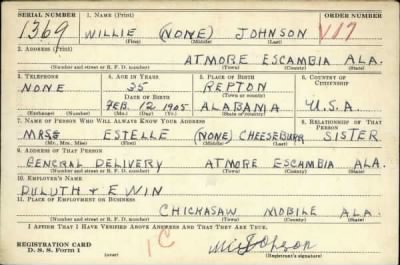 SERIAL NUMBER 1. NAME (Print) ORDER NUMBER
1369 WILLIE (NONE) JOHNSON V17
(First) (Middle) (Last)
2. ADDRESS (Print)
ATMORE ESCAMBIA ALA.
(Number and street or R. F. D. number) (Town) (County) (State)
3. TELEPHONE 4. AGE IN YEARS 5. PLACE OF BIRTH 6. COUNTRY OF CITIZENSHIP
NONE 35 REPTON
DATE OF BIRTH (Town or county)
FEB. 12 1905 ALABAMA U.S.A.
(Exchange) (Number) (Mo.) (Day) (Yr.) (State or country)
7. NAME OF PERSON WHO WILL ALWAYS KNOW YOUR ADDRESS 8. RELATIONSHIP OF THAT PERSON
MRS ESTELLE (NONE) CHEESEBURR SISTER
(Mr., Mrs., Miss) (First) (Middle) (Last)
9. ADDRESS OF THAT PERSON
GENERAL DELIVERY ATMORE ESCAMBIA ALA.
(Number and street or R. F. D. number) (Town) (County) (State)
10. EMPLOYER'S NAME
DULUTH & EWIN
11. PLACE OF EMPLOYMENT OR BUSINESS
CHICKASAW MOBILE ALA.
(Number and street or R. F. D. number) (Town) (County) (State)
I AFFIRM THAT I HAVE VERIFIED ABOVE ANSWERS AND THAT THEY ARE TRUE.
REGISTRATION CARD
D. S. S. Form 1 (over) 1C (Registrant's signature)